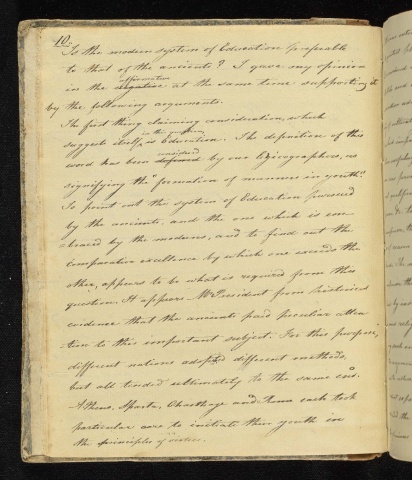 10.
Is the modern system of Education preferable
to that of the ancients? I gave my opinion
affirmative
in the negative at the same time supporting it
by the following arguments.
The first thing claiming consideration, which
in the question,
suggests itself is Education. The definition of this
word has been defined by our Lexicographers, as
signifying the "formation of manners in youth".
To point out the system of Education pursued
by the ancients, and the one which is em
braced by the moderns, and to find out the
comparative excellence by which one exceeds the
other, appears to be what is required from this
question. It appears Mr President from historical
evidence that the ancients paid peculiar atten
tion to this important subject. For this purpose,
different nations adopted different methods,
but all tended ultimately to the same end.
Athens, Sparta, Charthage and Rome each took
particular care to initiate their youth in
the principles of